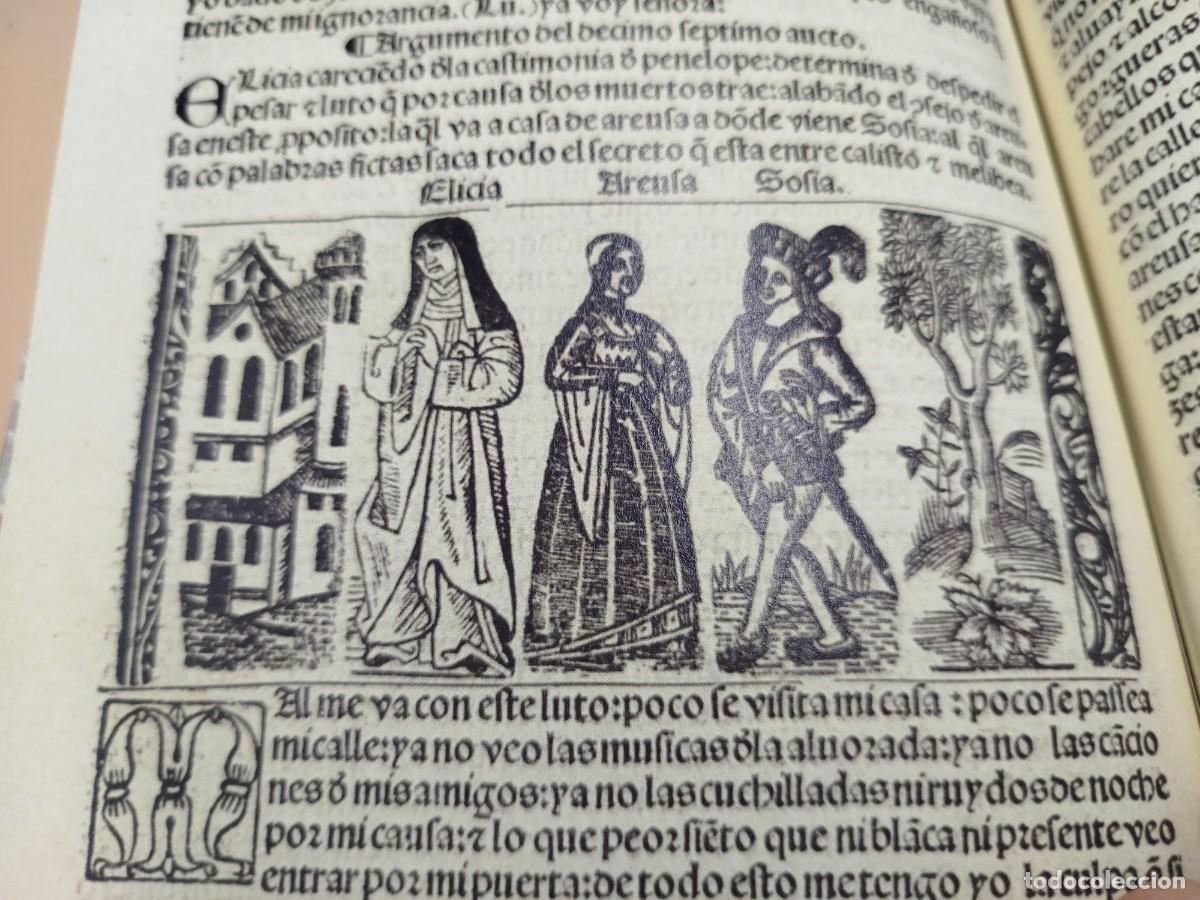 tienē de mi ignorancia. (Lu.) ya voy señora:
¶ Argumento del decimo septimo aucto.
ELicia careciēdo đla castimonia đ penelope: determina đ despedir el
pesar ⁊ luto q̄ por causa đlos muertos trae: alabādo el ꝯsejo đ areu
sa eneste ꝓposito: la q̄l va a casa de areusa a dōde viene Sosia: al q̄l areu
sa cō palabras fictas saca todo el secreto q̄ esta entre calisto ⁊ melibea.
Elicia Areusa Sosia.
MAl me va con este luto: poco se visita mi casa: poco se passea
mi calle: ya no veo las musicas đla aluorada: ya no las cācio
nes đ mis amigos: ya no las cuchilladas ni ruydos de noche
por mi causa: ⁊ lo que peor siēto que ni blāca ni presente veo
entrar por mi puerta: de todo esto me tengo yo la culpa
engañoso
cabellos
bare mi
re la calle
ro quien
cō el h
areusa
nes
esta
todocoleccion